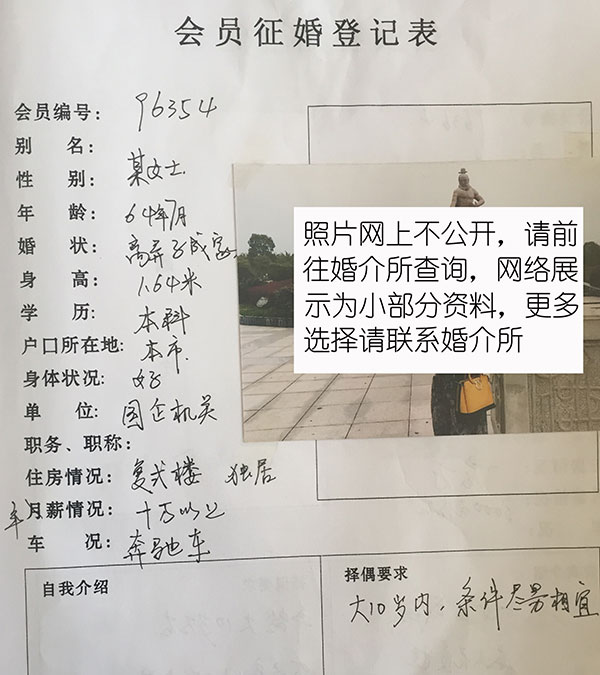 会员征婚登记表
会员编号： 96354
别 名：
性 别： 某女士
年 龄： 64年7月
婚 状： 离异 子成家
身 高： 1.64米
学 历： 本科
户口所在地： 本市
身体状况： 好
单 位： 国企机关
职务、职称：
住房情况： 复式楼 独居
年月薪情况： 十万以上
车 况： 奔驰车
照片网上不公开，请前
往婚介所查询，网络展
示为小部分资料，更多
选择请联系婚介所
自我介绍
择偶要求
大10岁内，条件尽量相宜